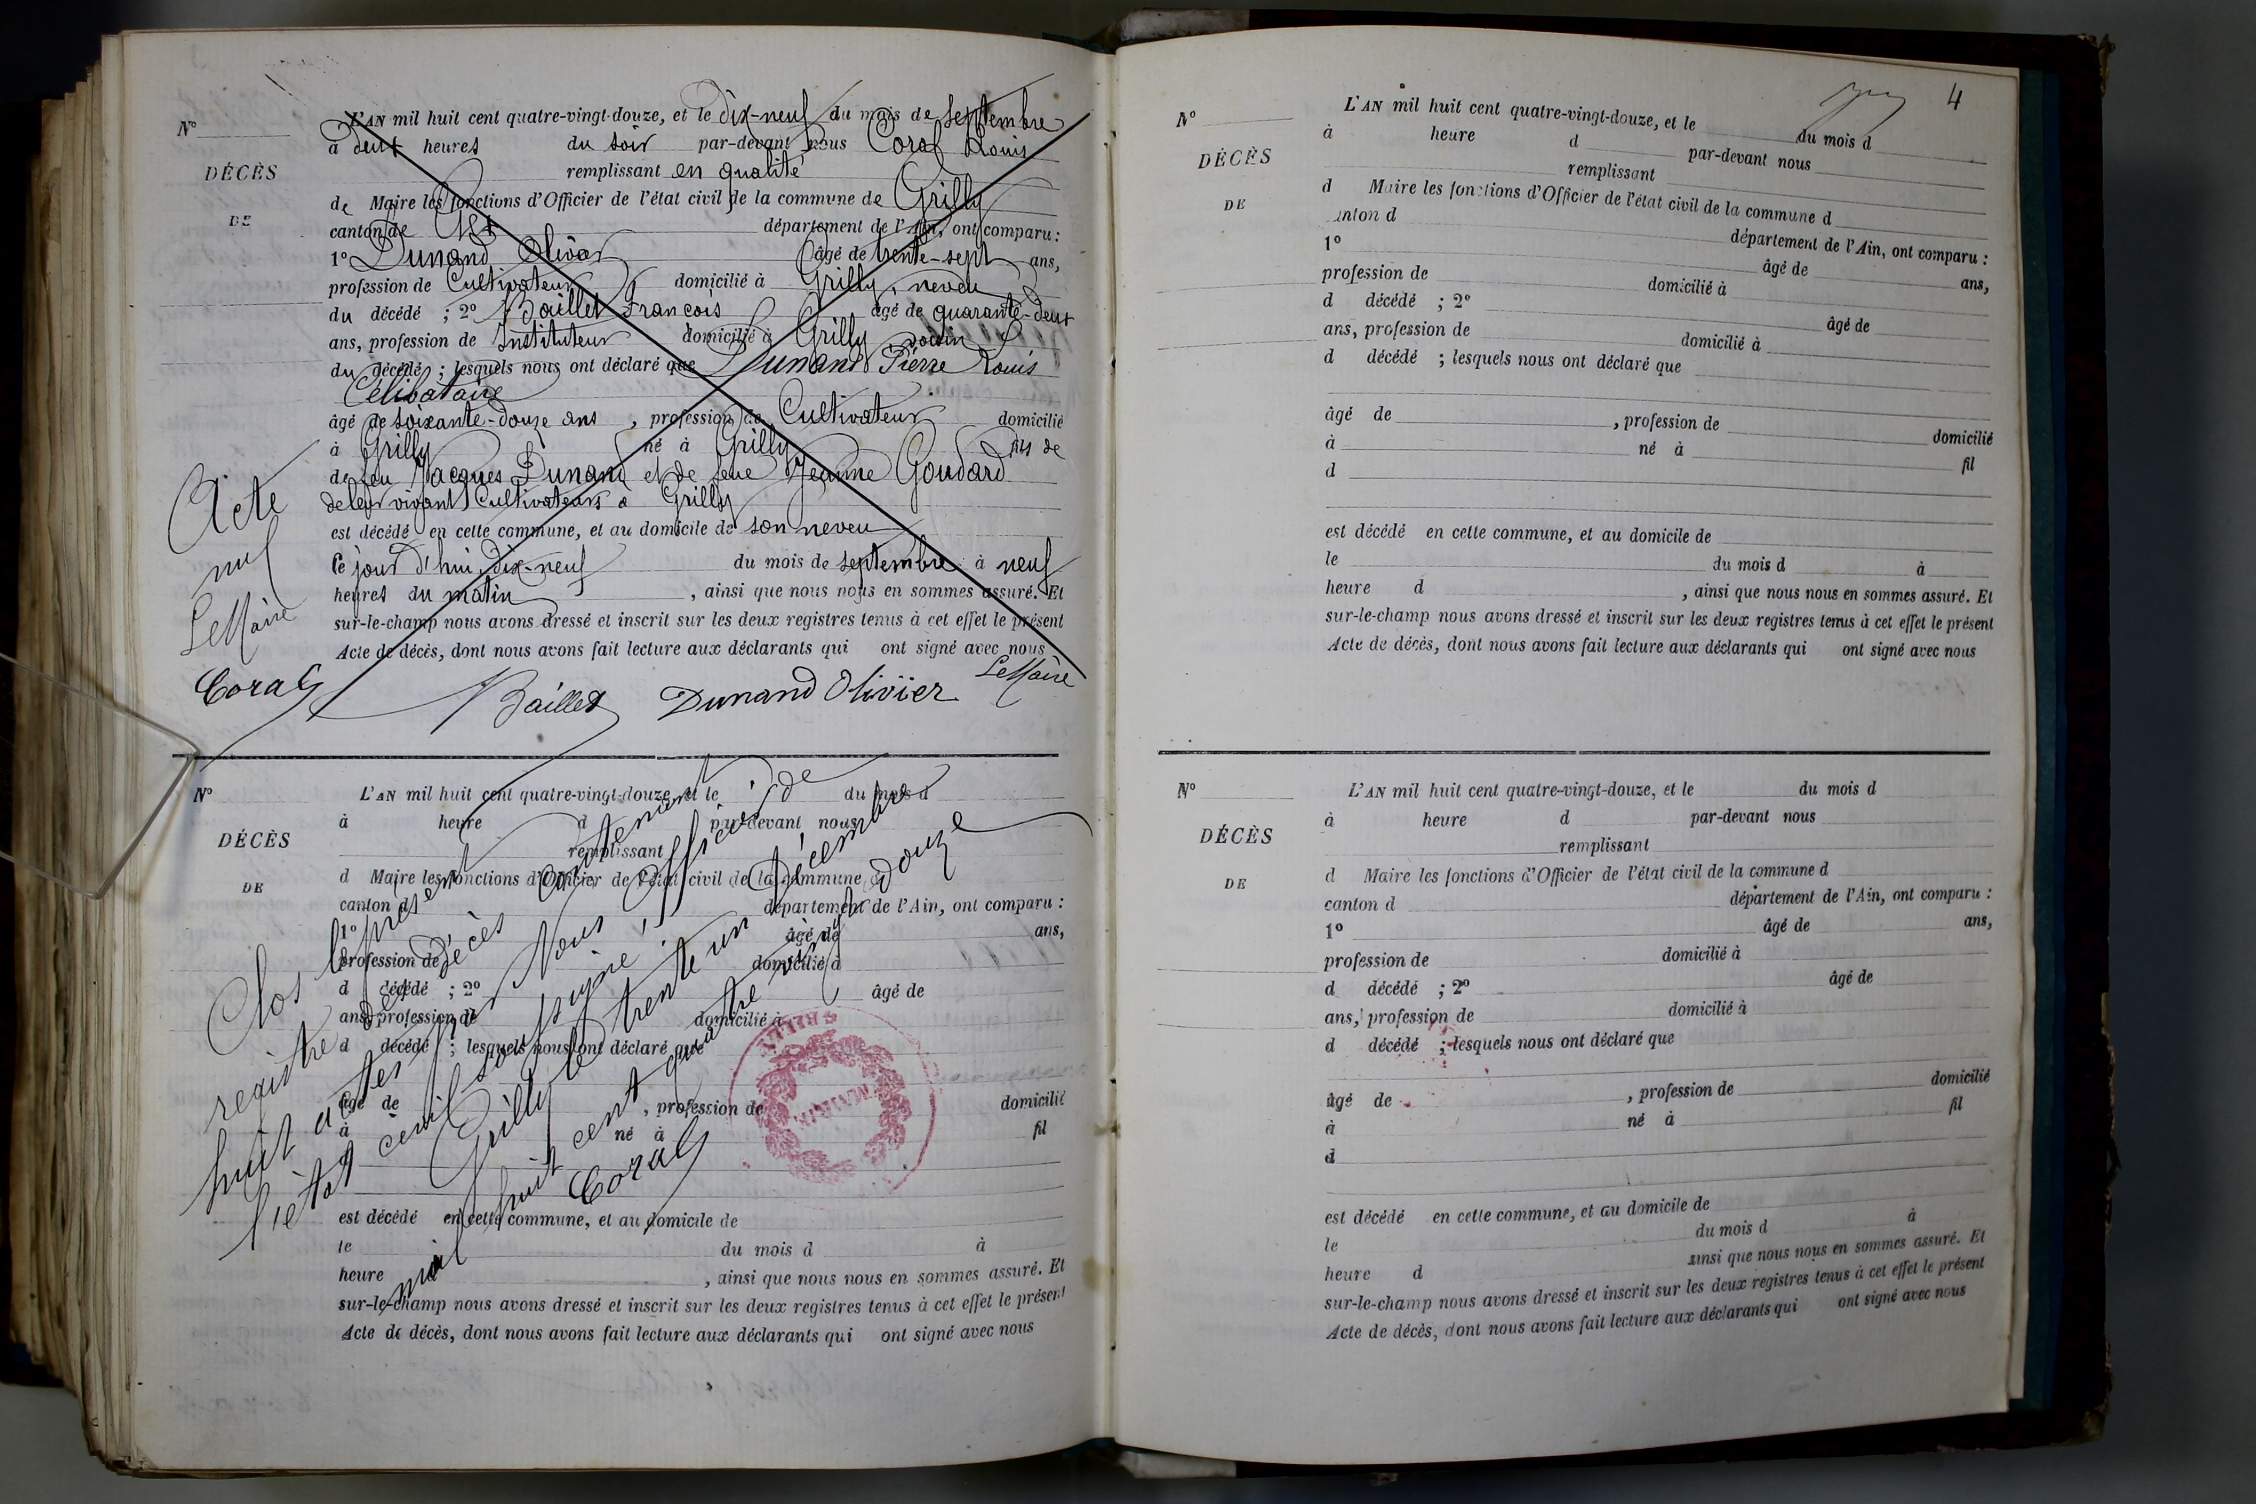 N° L'AN mil huit cent quatre-vingt-douze, et le dix-neuf du mois de septembre
à deux heures du soir par-devant nous Coral Louis
DÉCÈS remplissant en qualité
de Maire les fonctions d'Officier de l'état civil de la commune de Grilly
DE canton de département de l'Ain, ont comparu :
1° Dunand Olivier âgé de trente-sept ans,
profession de Cultivateur domicilié à Grilly, neveu
du décédé ; 2° Baillet François âgé de quarante-deux
ans, profession de Instituteur domicilié à Grilly voisin
du décédé ; lesquels nous ont déclaré que Dunand Pierre Louis
Célibataire
âgé de soixante-douze ans , profession de Cultivateur domicilié
à Grilly né à Grilly fils de
de feu Jacques Dunand et de feue Jeanne Goudard
de leur vivant Cultivateurs à Grilly
est décédé en cette commune, et au domicile de son neveu
Ce jour d'hui, dix-neuf du mois de septembre à neuf
heures du matin , ainsi que nous nous en sommes assuré. Et
sur-le-champ nous avons dressé et inscrit sur les deux registres tenus à cet effet le présent
Acte de décès, dont nous avons fait lecture aux déclarants qui ont signé avec nous
Le Maire
Baillet Dunand Olivier
Acte
nul
Le Maire
Coral
N° L'AN mil huit cent quatre-vingt-douze, et le du mois d
à heure d par-devant nous
DÉCÈS remplissant
d Maire les fonctions d'Officier de l'état civil de la commune d
DE canton d département de l'Ain, ont comparu :
1° âgé de ans,
profession de domicilié à
d décédé ; 2° âgé de
ans, profession de domicilié à
d décédé ; lesquels nous ont déclaré que
âgé de , profession de domicilié
à né à fil
d
est décédé en cette commune, et au domicile de
le du mois d à
heure , ainsi que nous nous en sommes assuré. Et
sur-le-champ nous avons dressé et inscrit sur les deux registres tenus à cet effet le présent
Acte de décès, dont nous avons fait lecture aux déclarants qui ont signé avec nous
Clos le présent
registre des Décès contenant
huit actes par Nous officier de
l'état civil soussigné,
Grilly le trente un Décembre
mil huit cent quatre vingt douze
Coral
4
N° L'AN mil huit cent quatre-vingt-douze, et le du mois d
à heure d par-devant nous
DÉCÈS remplissant
d Maire les fonctions d'Officier de l'état civil de la commune d
DE anton d département de l'Ain, ont comparu :
1° âgé de ans,
profession de domicilié à
d décédé ; 2° âgé de
ans, profession de domicilié à
d décédé ; lesquels nous ont déclaré que
âgé de , profession de domicilié
à né à fil
d
est décédé en cette commune, et au domicile de
le du mois d à
heure d , ainsi que nous nous en sommes assuré. Et
sur-le-champ nous avons dressé et inscrit sur les deux registres tenus à cet effet le présent
Acte de décès, dont nous avons fait lecture aux déclarants qui ont signé avec nous
N° L'AN mil huit cent quatre-vingt-douze, et le du mois d
à heure d par-devant nous
DÉCÈS remplissant
d Maire les fonctions d'Officier de l'état civil de la commune d
DE canton d département de l'Ain, ont comparu :
1° âgé de ans,
profession de domicilié à
d décédé ; 2° âgé de
ans, profession de domicilié à
d décédé ; lesquels nous ont déclaré que
âgé de , profession de domicilié
à né à fil
d
est décédé en cette commune, et au domicile de
le du mois d à
heure d ainsi que nous nous en sommes assuré. Et
sur-le-champ nous avons dressé et inscrit sur les deux registres tenus à cet effet le présent
Acte de décès, dont nous avons fait lecture aux déclarants qui ont signé avec nous